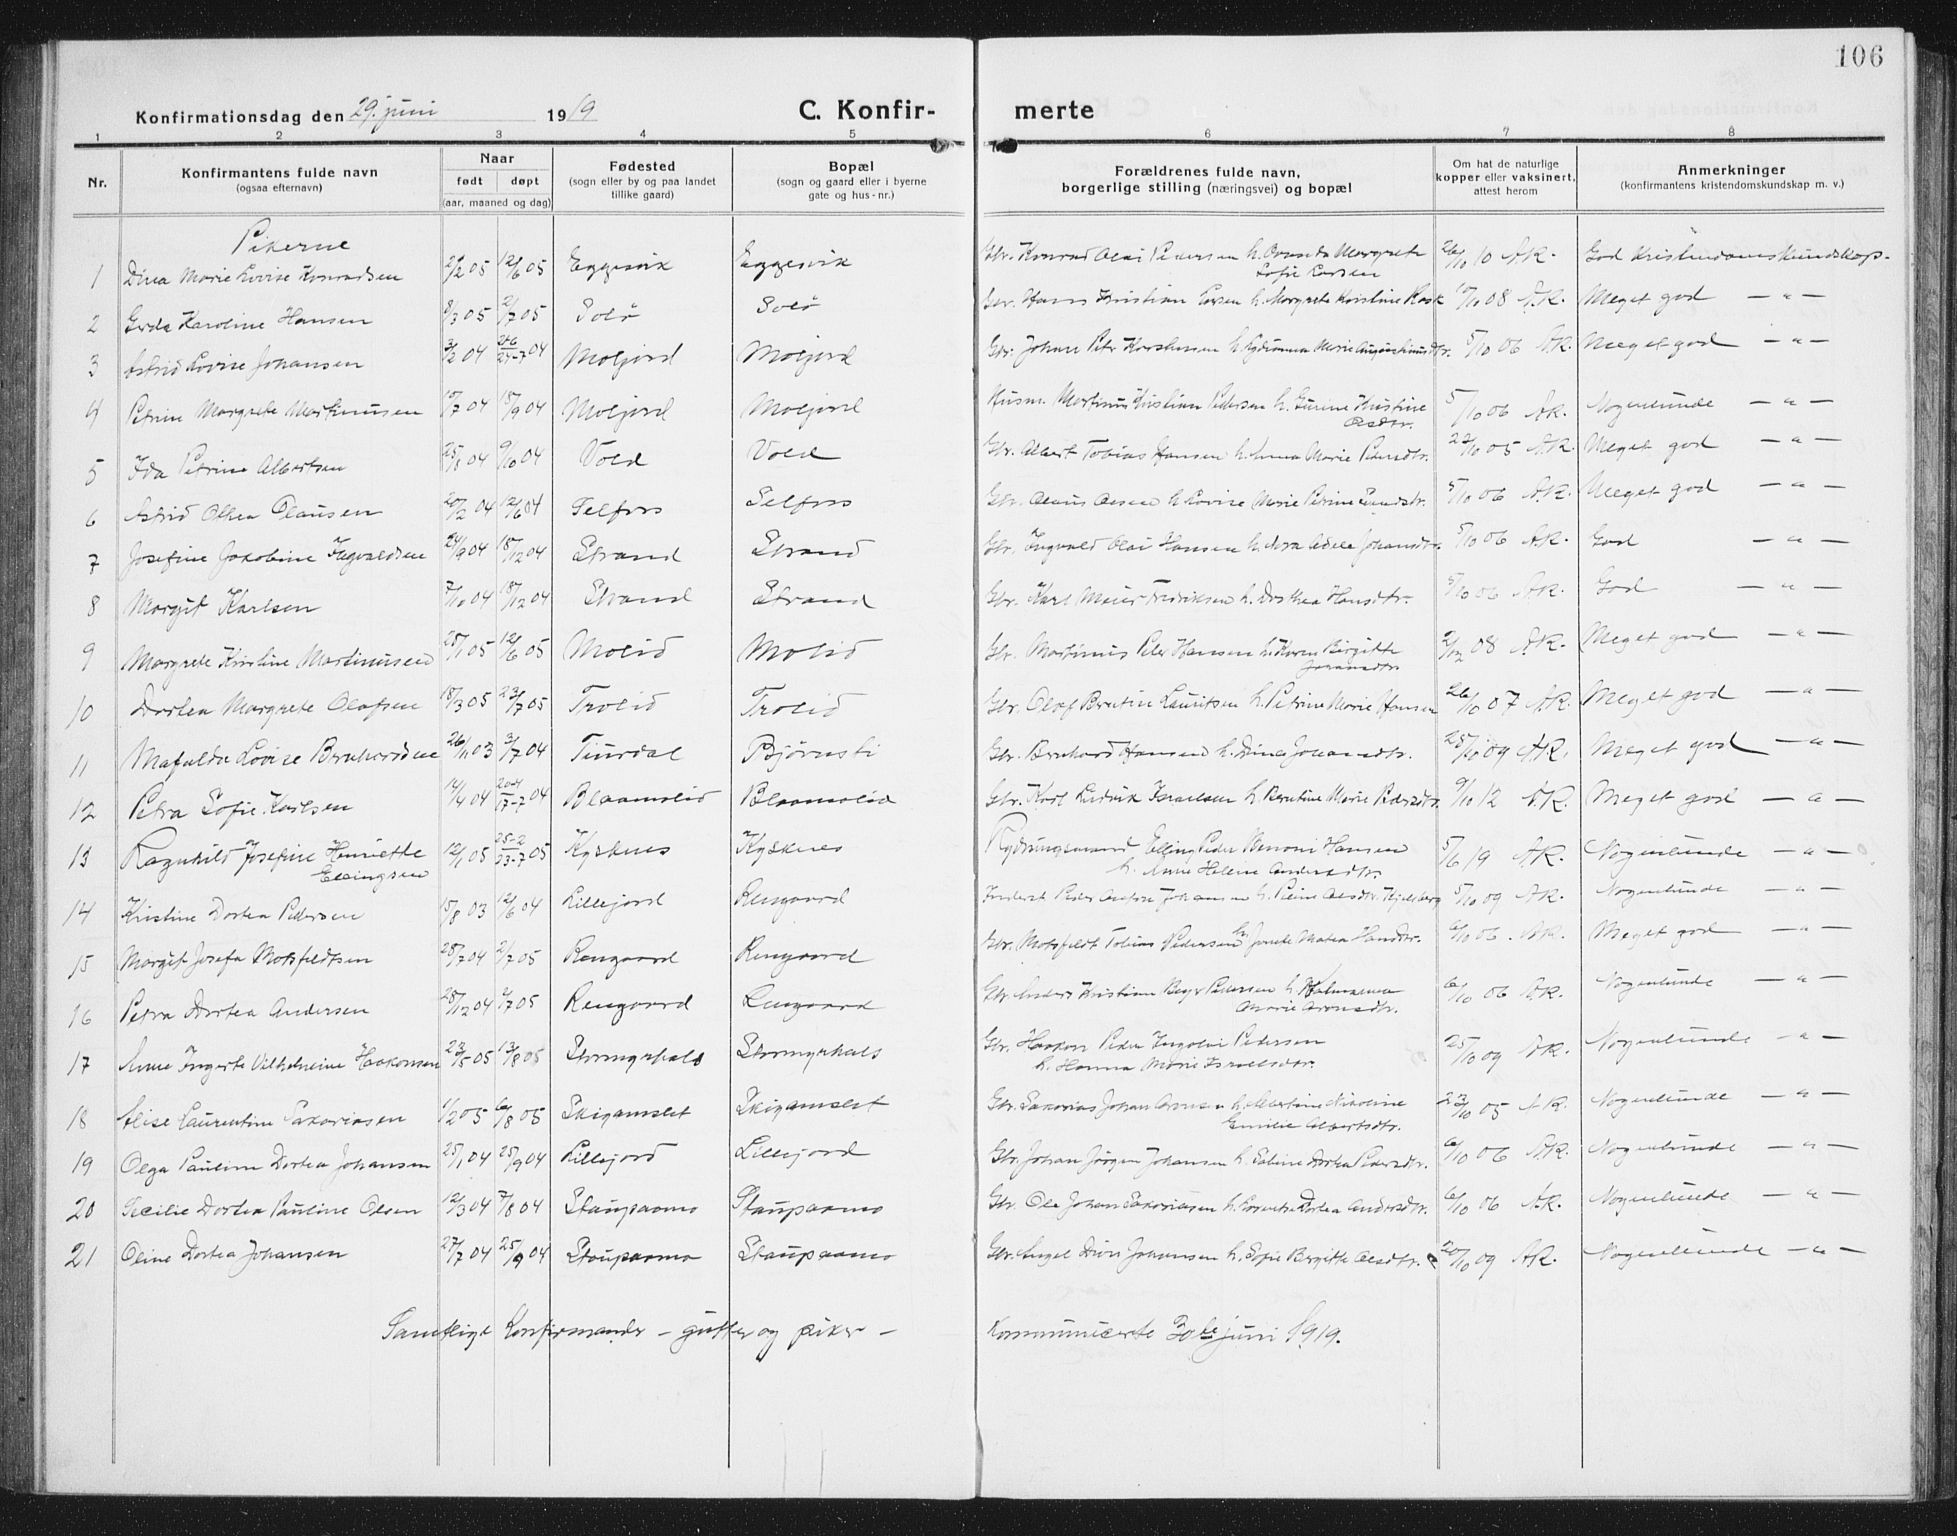 106
Konfirmationsdag den 29. juni 1919 C. Konfir- merte
1 2 3 4 5 6 7 8
Nr. Konfirmantens fulde navn (ogsaa efternavn) Naar født døpt (aar, maaned og dag) Fødested (sogn eller by og paa landet tillike gaard) Bopæl (sogn og gaard eller i byerne gate og hus-nr.) Forældrenes fulde navn, borgerlige stilling (næringsvei) og bopæl Om hat de naturlige kopper eller vaksinert, attest herom Anmerkninger (konfirmantens kristendomskundskap m. v.)
Pikerne
1 Dina Marie Lovise Konradsen 2/2 05 12/6 05 Eggesvik Eggesvik Gbr. Konrad Olai Pedersen h. Margrete Sofie Larsen 26/10 10 A.R. God Kristendomskundskap.
2 Gerda Karoline Hansen 8/3 05 2/7 05 Solø Solø Gbr. Hans Kristian Larsen h. Margrete Kristine Rask 10/10 08 A.R. Meget god — " —
3 Astrid Lovise Johansen 3/2 04 24-7 04 Moljord Moljord Gbr. Johan Petr h. Marie 5/10 06 A.R. Meget god — " —
4 Petrine Margrete Martinussen 10/7 04 18/9 04 Moljord Moljord Husm. Martinus Kristian Pedersen h. Gurine Kristine Olsdtr. 5/10 06 A.R. Nogenlunde — " —
5 Ida Petrine Albertsen 25/8 04 9/10 04 Vold Vold Gbr. Albert Tobias Hansen h. Anna Marie Pedersdtr. 27/10 05 A.R. Meget god — " —
6 Astrid Olsen Clausen 20/2 04 12/6 04 Selfors Selfors Gbr. Claus Olsen h. Lovise Marie Petrine 5/10 06 A.R. Meget god — " —
7 Josefine Jakobine Ingvaldsen 24/9 04 18/12 04 Strand Strand Gbr. Ingvald Olai Hansen h. Nora Adele Johansdtr. 5/10 06 A.R. God — " —
8 Margit Karlsen 7/10 04 18/12 04 Strand Strand Gbr. Karl Meier Fredriksen h. Dorthea Hansdtr. 5/10 06 A.R. God — " —
9 Margrete Kristine Martinussen 25/1 05 12/6 05 Molid Molid Gbr. Martinus Peter Hansen h. Karen Birgitte Johansdtr. 2/12 08 A.R. Meget god — " —
10 Dortea Margrete Olafsen 18/3 05 23/7 05 Trolid Trolid Gbr. Olaf Berntin Lauritsen h. Petrine Marie Hansen 26/10 07 A.R. Meget god — " —
11 Mafalda Lovise Bernhardsen 26/11 03 3/7 04 Tiurdal Bjørnsti Gbr. Bernhard Hansen h. Dina Johansdtr. 25/10 09 A.R. Meget god — " —
12 Petra Sofie Karlsen 14/4 04 20-4 17-7 04 Blaamolid Blaamolid Gbr. Karl Ludvik Israelsen h. Berntine Marie Pedersdtr. 9/10 12 A.R. Meget god — " —
13 Ragnhild Josefine Henriette Ellingsen 12/1 05 25-2 23-7 05 Kjelnes Kjelnes Rydningsmand Elling Peder Benoni Hansen h. Anne Helene Andersdtr. 5/6 19 A.R. Nogenlunde — " —
14 Kristine Dortea Pedersen 15/8 03 12/6 04 Lillejord Rengaard Inderst Peder Johansen h. Olsdtr. Hjelsberg 5/10 09 A.R. Nogenlunde — " —
15 Margit Josefa Motsfeldtsen 28/7 04 2/7 05 Rengaard Rengaard Gbr. Motsfeldt Tobias Pedersen h. Matea Hansdtr. 6/10 06. A.R. Meget god — " —
16 Petra Dortea Andersen 28/12 04 2/7 05 Rengaard Rengaard Gbr. Anders Kristian Pedersen h. Marie Aronsdtr. 6/10 06 A.R. Nogenlunde — " —
17 Anne Ingerte Vilhelmine Haakonsen 23/5 05 13/8 05 Stormyrhals Stormyrhals Gbr. Haakon Peder Ingolvi Pedersen h. Hanna Marie Israelsdtr. 25/10 09 A.R. Nogenlunde — " —
18 Alise Laurentine Sakariasen 1/2 05 6/8 05 Skigamslet Skigamslet Gbr. Sakarias Johan h. Albertine Nikoline Emilie Albertsdtr. 23/10 05 A.R. Nogenlunde — " —
19 Olga Pauline Dortea Johansen 25/1 04 25/9 04 Lillejord Lillejord Gbr. Johan Jørgen Johansen h. Sabine Dortea Pedersdtr. 6/10 06 A.R. Nogenlunde — " —
20 Cecilie Dortea Pauline Olsen 12/3 04 7/8 04 Staupaamo Staupaamo Gbr. Ole Johan Sakariasen h. Dortea Andersdtr. 6/10 06 A.R. Nogenlunde — " —
21 Oline Dortea Johansen 27/7 04 25/9 04 Staupaamo Staupaamo Gbr. Johansen h. Sofie Birgitte Olsdtr. 20/10 09 A.R. Nogenlunde — " —
Samtlige Konfirmander — gutter og piker — kommunicerte 30te juni 1919.